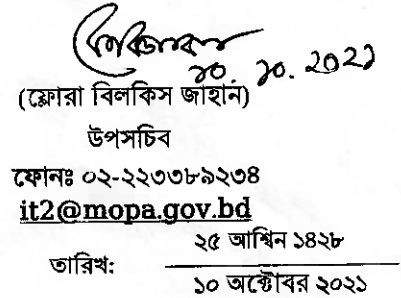 ১০.১০.২০২১
(ফ্লোরা বিলকিস জাহান)
উপসচিব
ফোনঃ ০২-২২৩৩৮৯২৩৪
it2@mopa.gov.bd
তারিখ:
২৫ আশ্বিন ১৪২৮
১০ অক্টোবর ২০২১